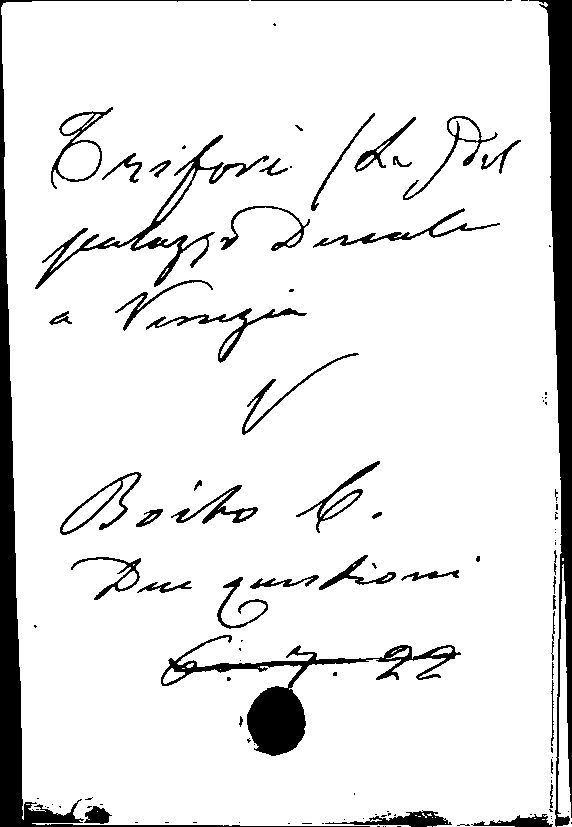 Trifore (Le) del
palazzo Ducale
a Venezia
V
Boito C.
Due questioni
6. 7. 22